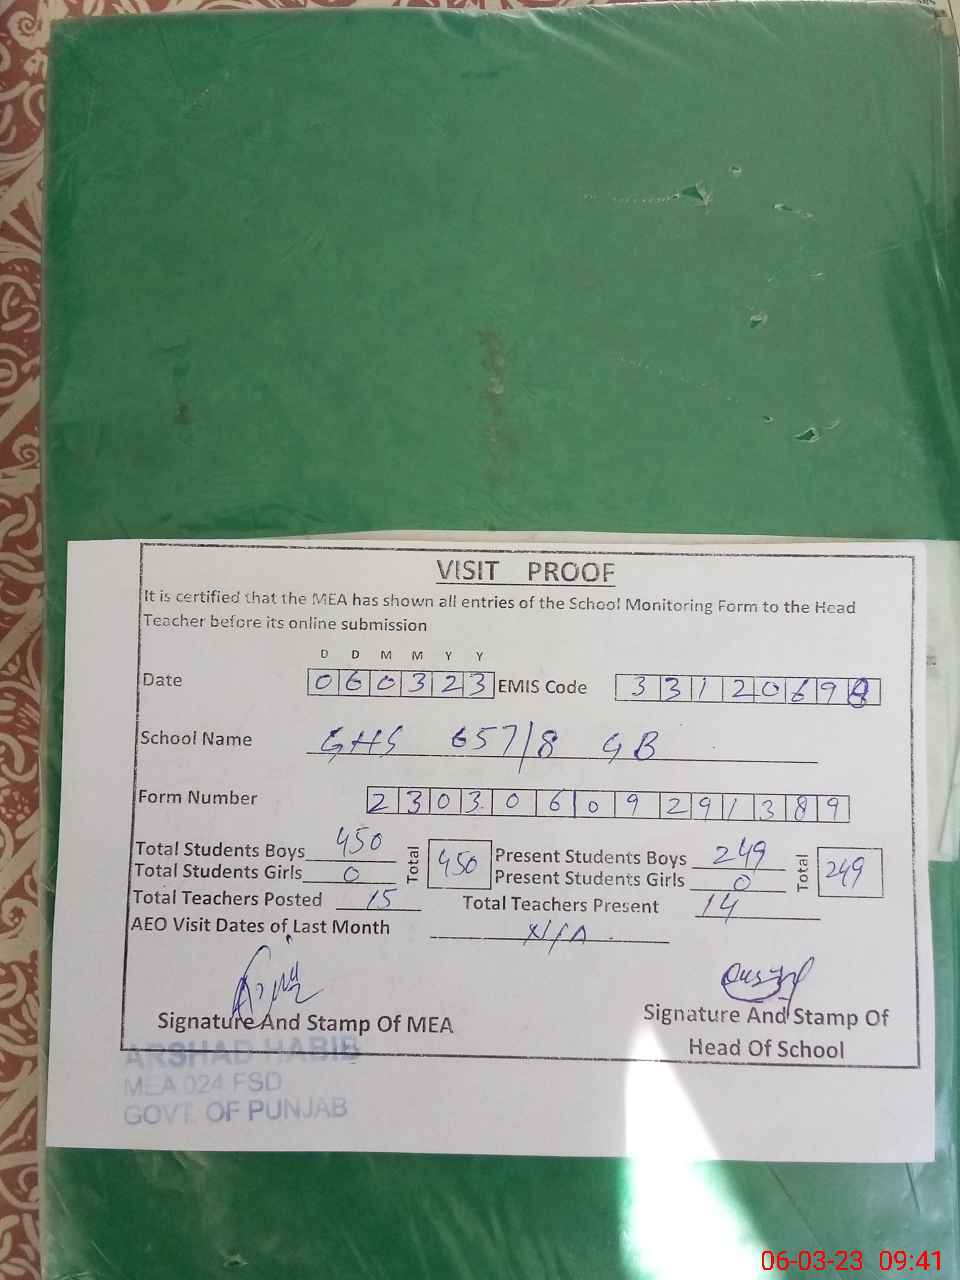 VISIT PROOF
It is certified that the MEA has shown all entries of the School Monitoring Form to the Head
Teacher before its online submission
D D M M Y Y
Date 060323 EMIS Code 3312069
School Name GHS 657/8 GB
Form Number 23030609291389
Total Students Boys 450 Total 450 Present Students Boys 249 Total 249
Total Students Girls 0 Present Students Girls 0
Total Teachers Posted 15 Total Teachers Present 14
AEO Visit Dates of Last Month N/A
Signature And Stamp Of MEA Signature And Stamp Of
Head Of School
ARSHAD HABIB
MEA 024 FSD
GOVT. OF PUNJAB
06-03-23 09:41